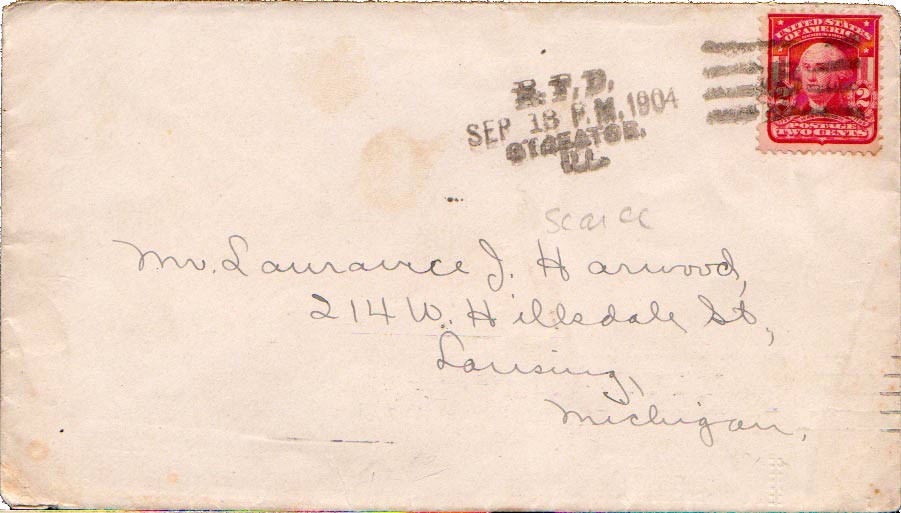 R.F.D.
SEP 13 P.M. 1904
STREATOR.
ILL.
UNITED STATES
OF AMERICA
2 2
POSTAGE
TWO CENTS
scarce
Mr. Laurance J. Harwood,
214 W. Hillsdale St,
Lansing,
Michigan.